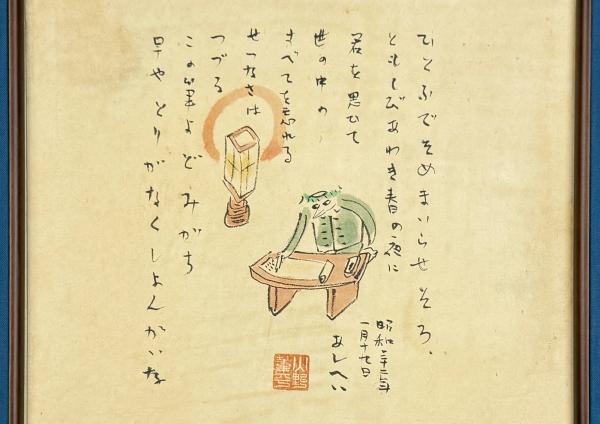 ひとふでそめまいらせそろ、
ともしびあわき春の夜に
君を思ひて
世の中の
すべてを忘れる
せつなさは
つづる
この筆よどみがち
早やとりがなくしよんがいな
昭和
一月十九日
あしへい